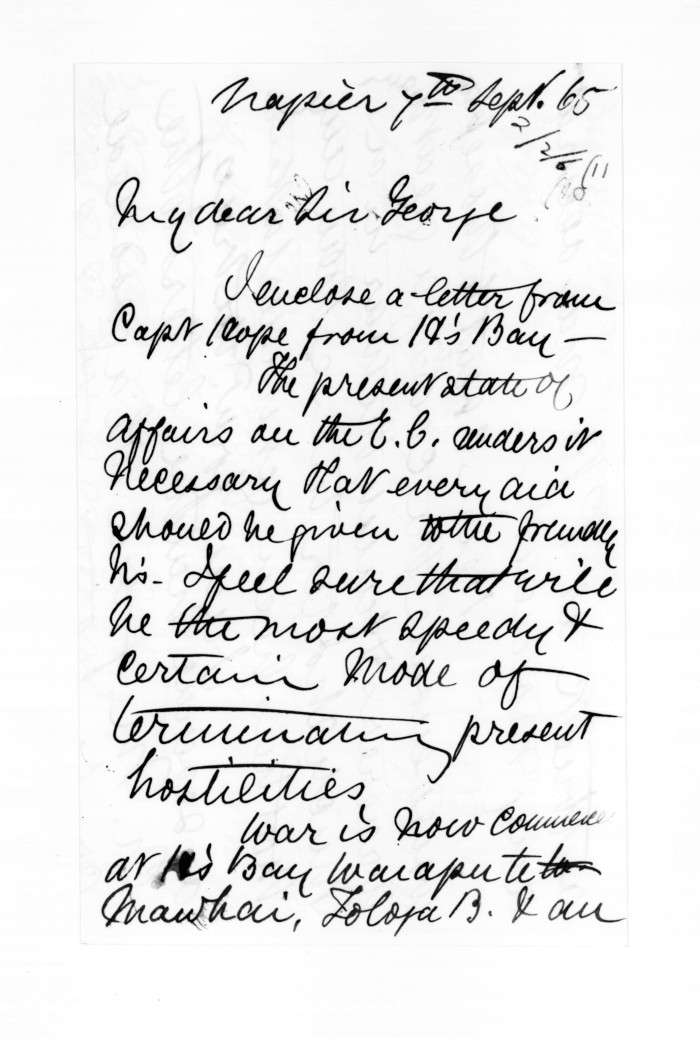 Napier 7th Sept. 65
My dear Sir George
I enclose a letter from
Capt Hope from H's Bay —
The present state of
affairs on the E.C. renders it
necessary that every aid
should be given to the friendly
N's - I feel sure that will
be the most speedy &
certain mode of
terminating present
hostilities
War is now commence
at H's Bay Waiaputeto
Mawhai, Tologa B. & an